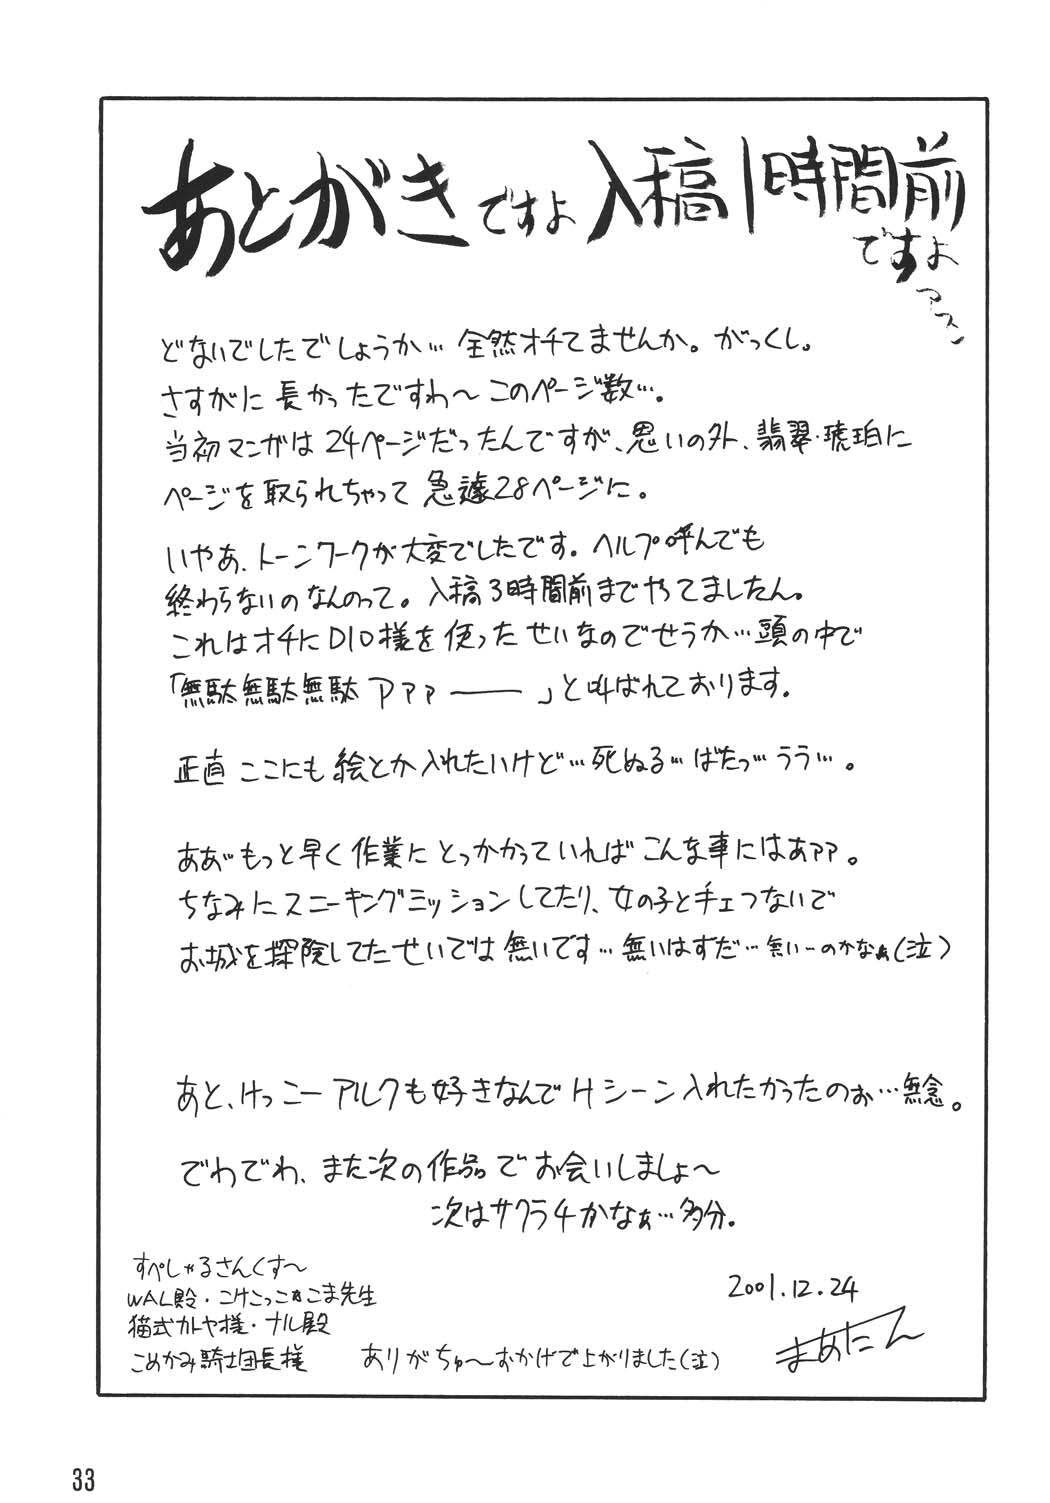 あとがきですよ 入稿1時間前
ですよ
アスン
どないでしたでしょうか… 全然オチてませんか。がっくし。
さすがに長かったですわ〜このページ数…。
当初マンガは24ページだったんですが、思いの外、翡翠・琥珀に
ページを取られちゃって急遽28ページに。
いやあ、トーンワークが大変でしたです。ヘルプ呼んでも
終わらないのなんのって。入稿3時間前までやってましたん。
これはオチにDIO様を使ったせいなのでせうか…頭の中で
「無駄無駄無駄アァァ――」と叫ばれております。
正直ここにも絵とか入れたいけど…死ぬる…ばたっ…うう…。
ああ゛もっと早く作業にとっかかっていればこんな事にはあァァ。
ちなみにスニーキングミッションしてたり、女の子と手ェつないで
お城を探険してたせいでは無いです…無いはずだ…無い…のかなぁ(泣)
あと、けっこーアルクも好きなんでHシーン入れたかったのぉ…無念。
でわでわ、また次の作品でお会いしましょ〜
次はサクラ4かなぁ…多分。
すぺしゃるさんくす〜
WAL殿・こけこっこぉこま先生
猫式カトヤ様・ナル殿
こめかみ騎士団長様 ありがちゅ〜おかげで上がりました(泣)
2001.12.24
まあたん
33